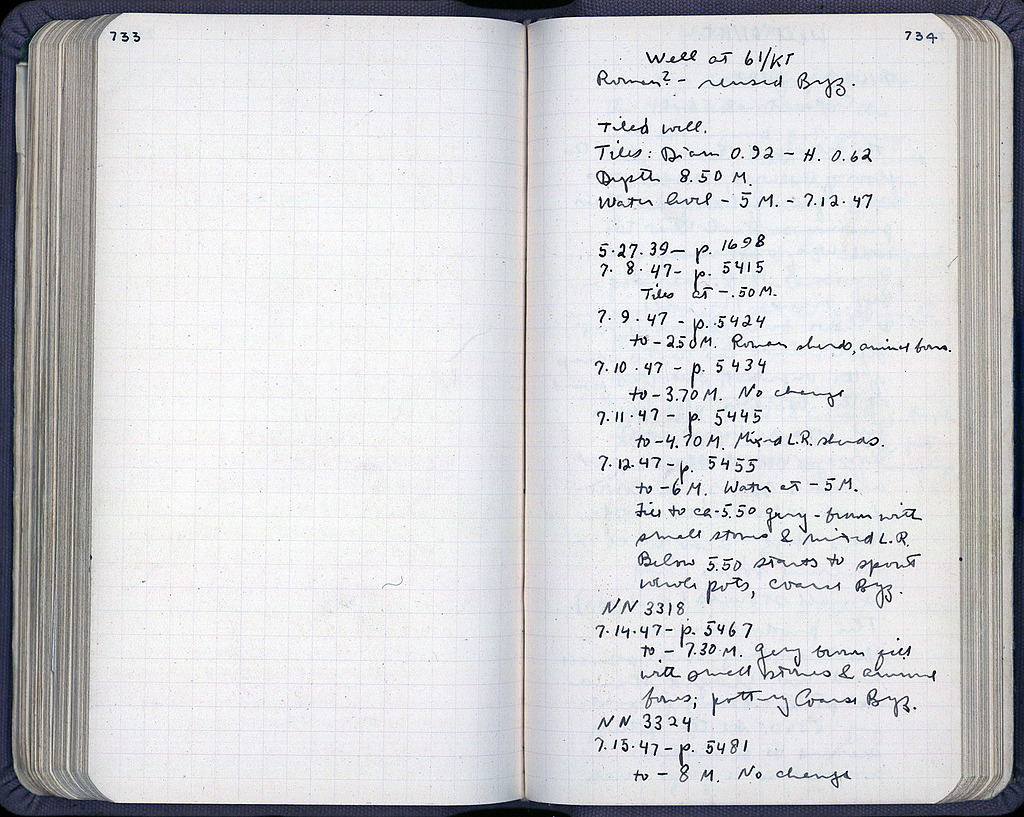 733
734
Well at 61/KT
Roman? - reused Byz.
Tiled well.
Tiles: Diam 0.92 - H. 0.62
Depth 8.50 M.
Water level - 5 M. - 7.12.47
5.27.39 - p. 1698
7.8.47 - p. 5415
Tiles at -.50 M.
7.9.47 - p. 5424
to -2.50 M. Roman sherds, animal bones.
7.10.47 - p. 5434
to -3.70 M. No change
7.11.47 - p. 5445
to -4.70 M. Mixed L.R. sherds.
7.12.47 - p. 5455
to -6 M. Water at -5 M.
Fill to ca -5.50 grey-brown with
small stones & mixed L.R.
Below 5.50 starts to spout
whole pots, coarse Byz.
NN 3318
7.14.47 - p. 5467
to - 7.30 M. Grey brown fill
with small stones & animal
bones; pottery Coarse Byz.
NN 3324
7.15.47 - p. 5481
to - 8 M. No change